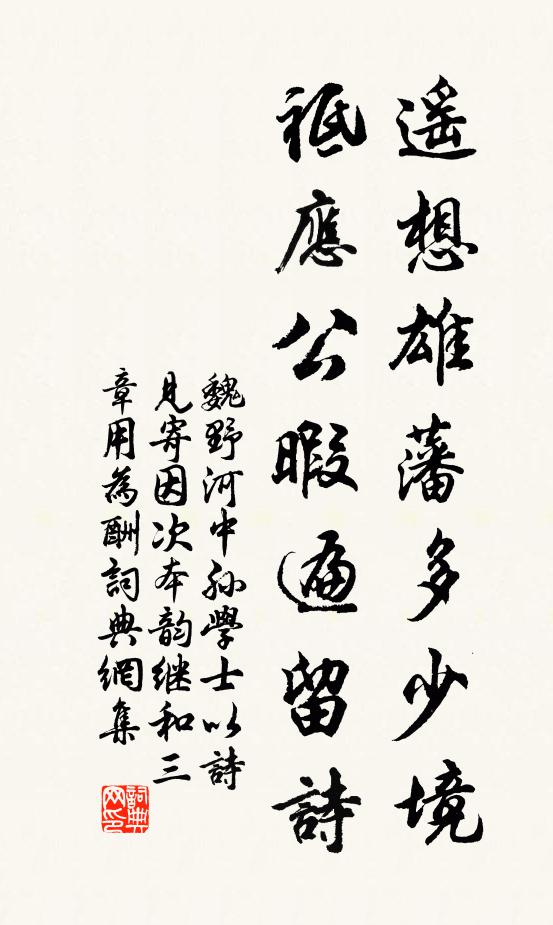 遥想雄藩多少境
祗應公暇遍留詩
魏野河中孫學士以詩
見寄因次本韵继和三
章用為酬詞典網集
詞典网印